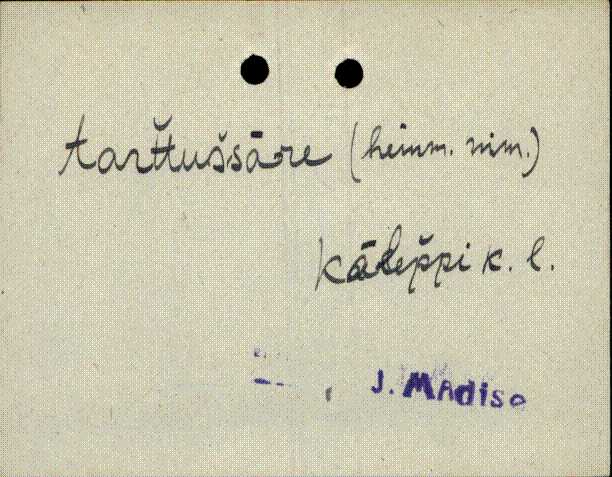 tarťťuššāre (heinm. nim.)
kālep̌pi k. l.
J. Madiso